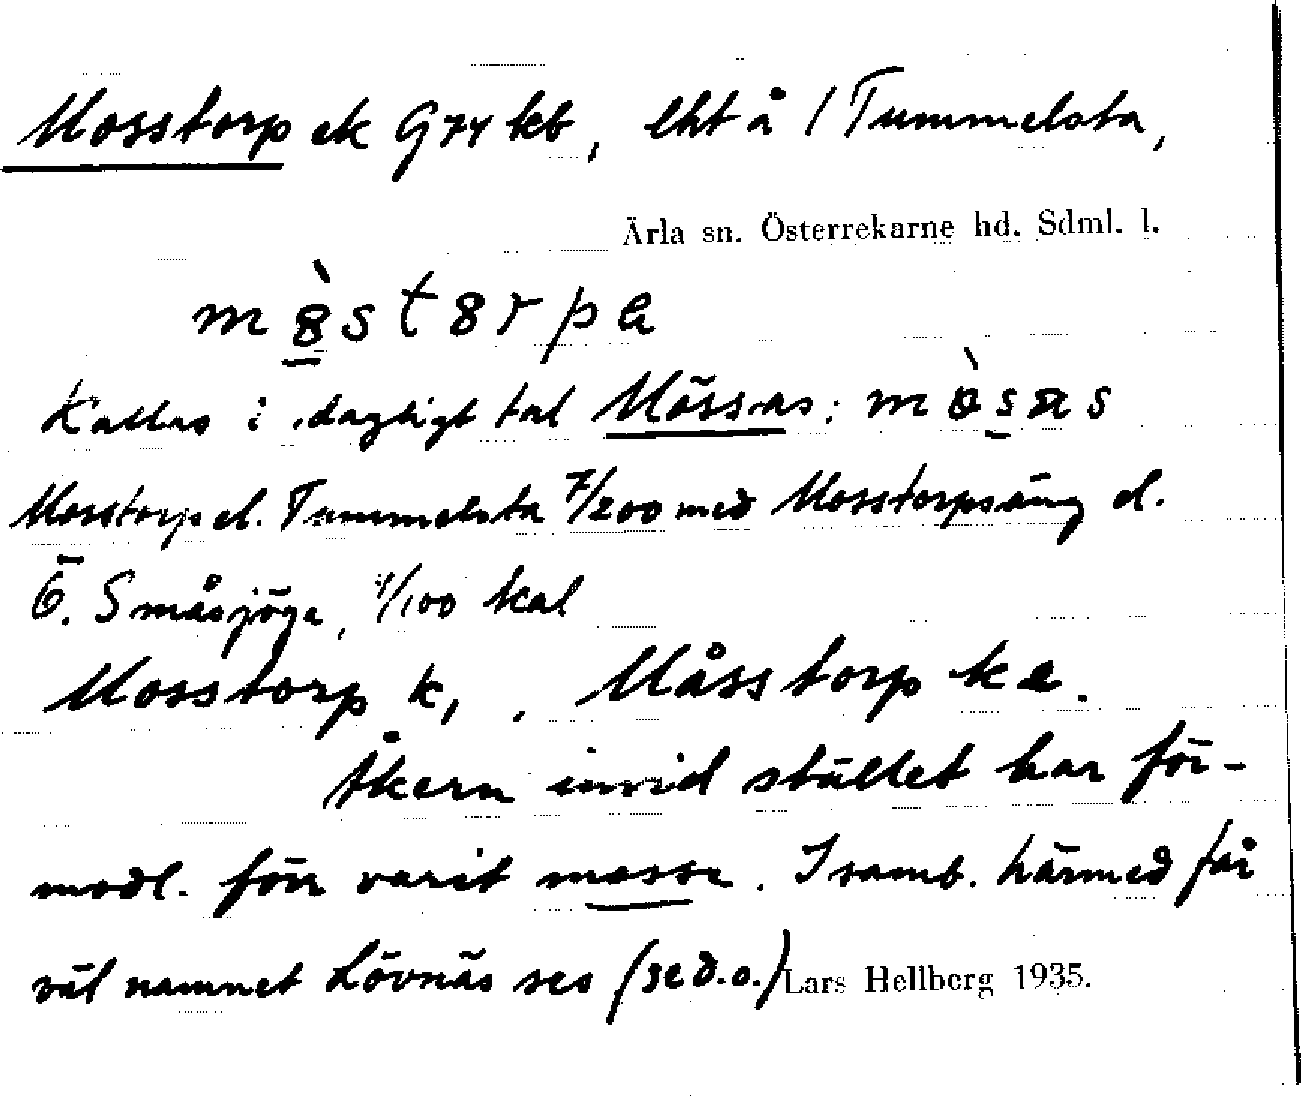 Mosstorp ek G74 kb, lht å / Tummelsta,
Ärla sn. Österrekarne hd. Sdml. l.
Kallas i dagligt tal Mössas:
Mosstorp el. Tummelsta 7/200 med Mosstorpsäng el.
Ö. Småsjöga, 1/100 kal
Mosstorp k, . Måsstorp ke.
Åkern invid stället har för-
modl. förr varit mosse. I samb. härmed får
väl namnet Lövnäs ses (se d.o.) Lars Hellberg 1935.